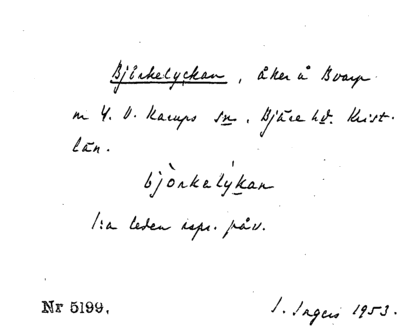 Björkelyckan, åker å Boarp
n 4, V. Karups sn, Bjäre hd. Krist.
län.
bjòrkelýkan
1:a leden uspr. påv.
Nr 5199.
I. Ingers 1953.